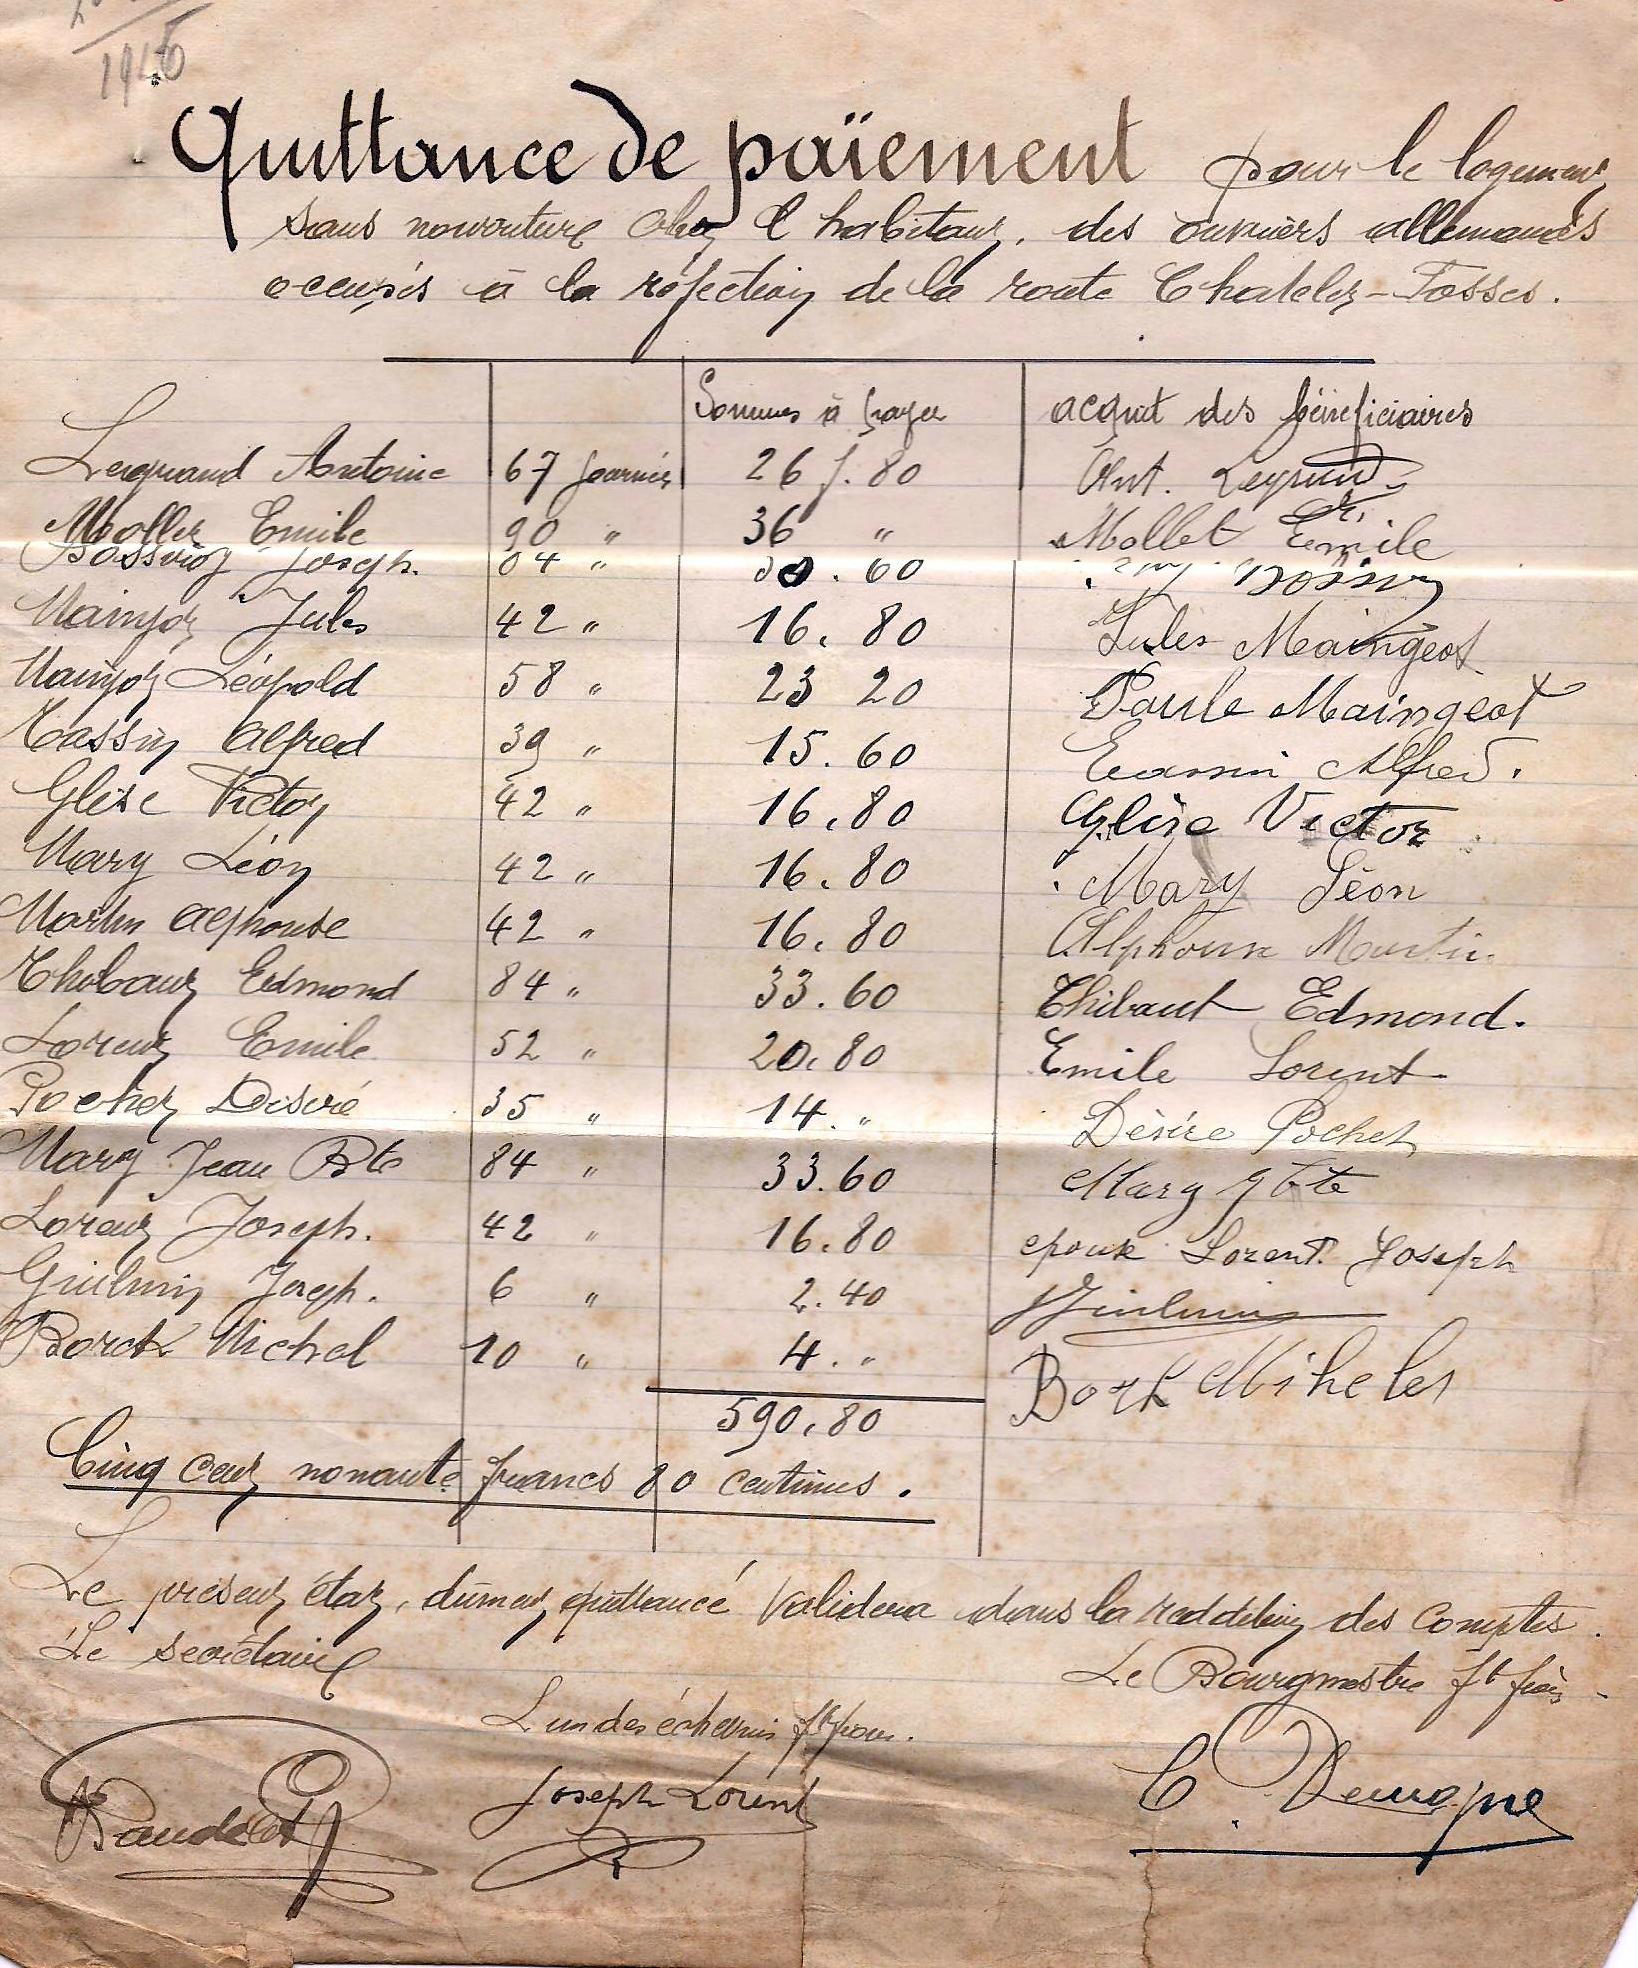 1916
Quittance de païement pour le logement
sans nourriture chez l'habitant, des ouvriers allemands
occupés à la réfection de la route Chatelet-Fosses.
Sommes à payer acquit des bénéficiaires
Legrand Antoine 67 journées 26 f. 80 Ant. Legrand
Mollet Emile 90 " 36 " Mollet Emile
Joseph. 84 " . 60
Mainjot Jules 42 " 16. 80 Jules Maingeot
Mainjot Léopold 58 " 23 20 Paule Maingeot
Tassin Alfred 39 " 15. 60 Tassin Alfred.
Glise Victor 42 " 16. 80 Glise Victor
Mary Léon 42 " 16. 80 Mary Léon
Martin Alphonse 42 " 16. 80 Alphonse Martin.
Thibaut Edmond 84 " 33. 60 Thibaut Edmond.
Lorent Emile 52 " 20. 80 Emile Lorent
Pochet Désiré 35 " 14. " Dèsire Pochet
Mary Jean Bte 84 " 33. 60 Mary J Bte
Lorent Joseph. 42 " 16. 80 epouse Lorent. Joseph
Guilmin Joseph. 6 " 2. 40 J Guilmin
Borck Michel 10 " 4. " Bork Miheles
590,80
Cinq cent nonante francs 80 centimes.
Le présent état, dûment quittancé validera dans la reddition des comptes.
Le secrétaire Le Bourgmestre ff
L'un des échevins
Joseph Lorent